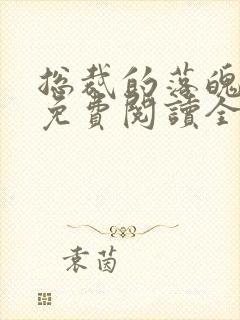 总裁的落魄
免費閱讀全
袁茵